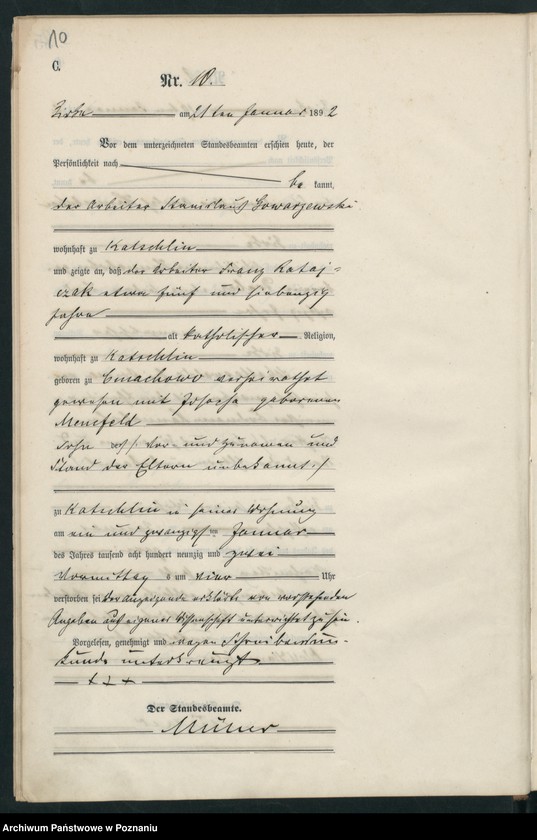 10
C.
Nr. 10.
Zirke am 21ten Januar 1892
Vor dem unterzeichneten Standesbeamten erschien heute, der
Persönlichkeit nach
be kannt,
der Arbeiter Stanislaus Gowarzewski
wohnhaft zu Katschlin
und zeigte an, daß der Arbeiter Franz Rataj=
czak etwa fünf und siebenzig
Jahre
alt katholischer Religion,
wohnhaft zu Katschlin
geboren zu Cmachowo verheirathet
gewesen mit Josepha geborenen
Menefeld
Sohn /: Vor- und Zunamen und
Stand der Eltern unbekannt :/
zu Katschlin in seiner Wohnung
am ein und zwanzigsten Januar
des Jahres tausend acht hundert neunzig und zwei
Vormittag s um vier Uhr
verstorben sei der Anzeigende erklärte von vorstehenden
Angaben aus eigener Wissenschaft unterrichtet zu sein.
Vorgelesen, genehmigt und wegen Schreibensun-
kunde unterkreuzt
+ + +
Der Standesbeamte.
Müller
Archiwum Państwowe w Poznaniu